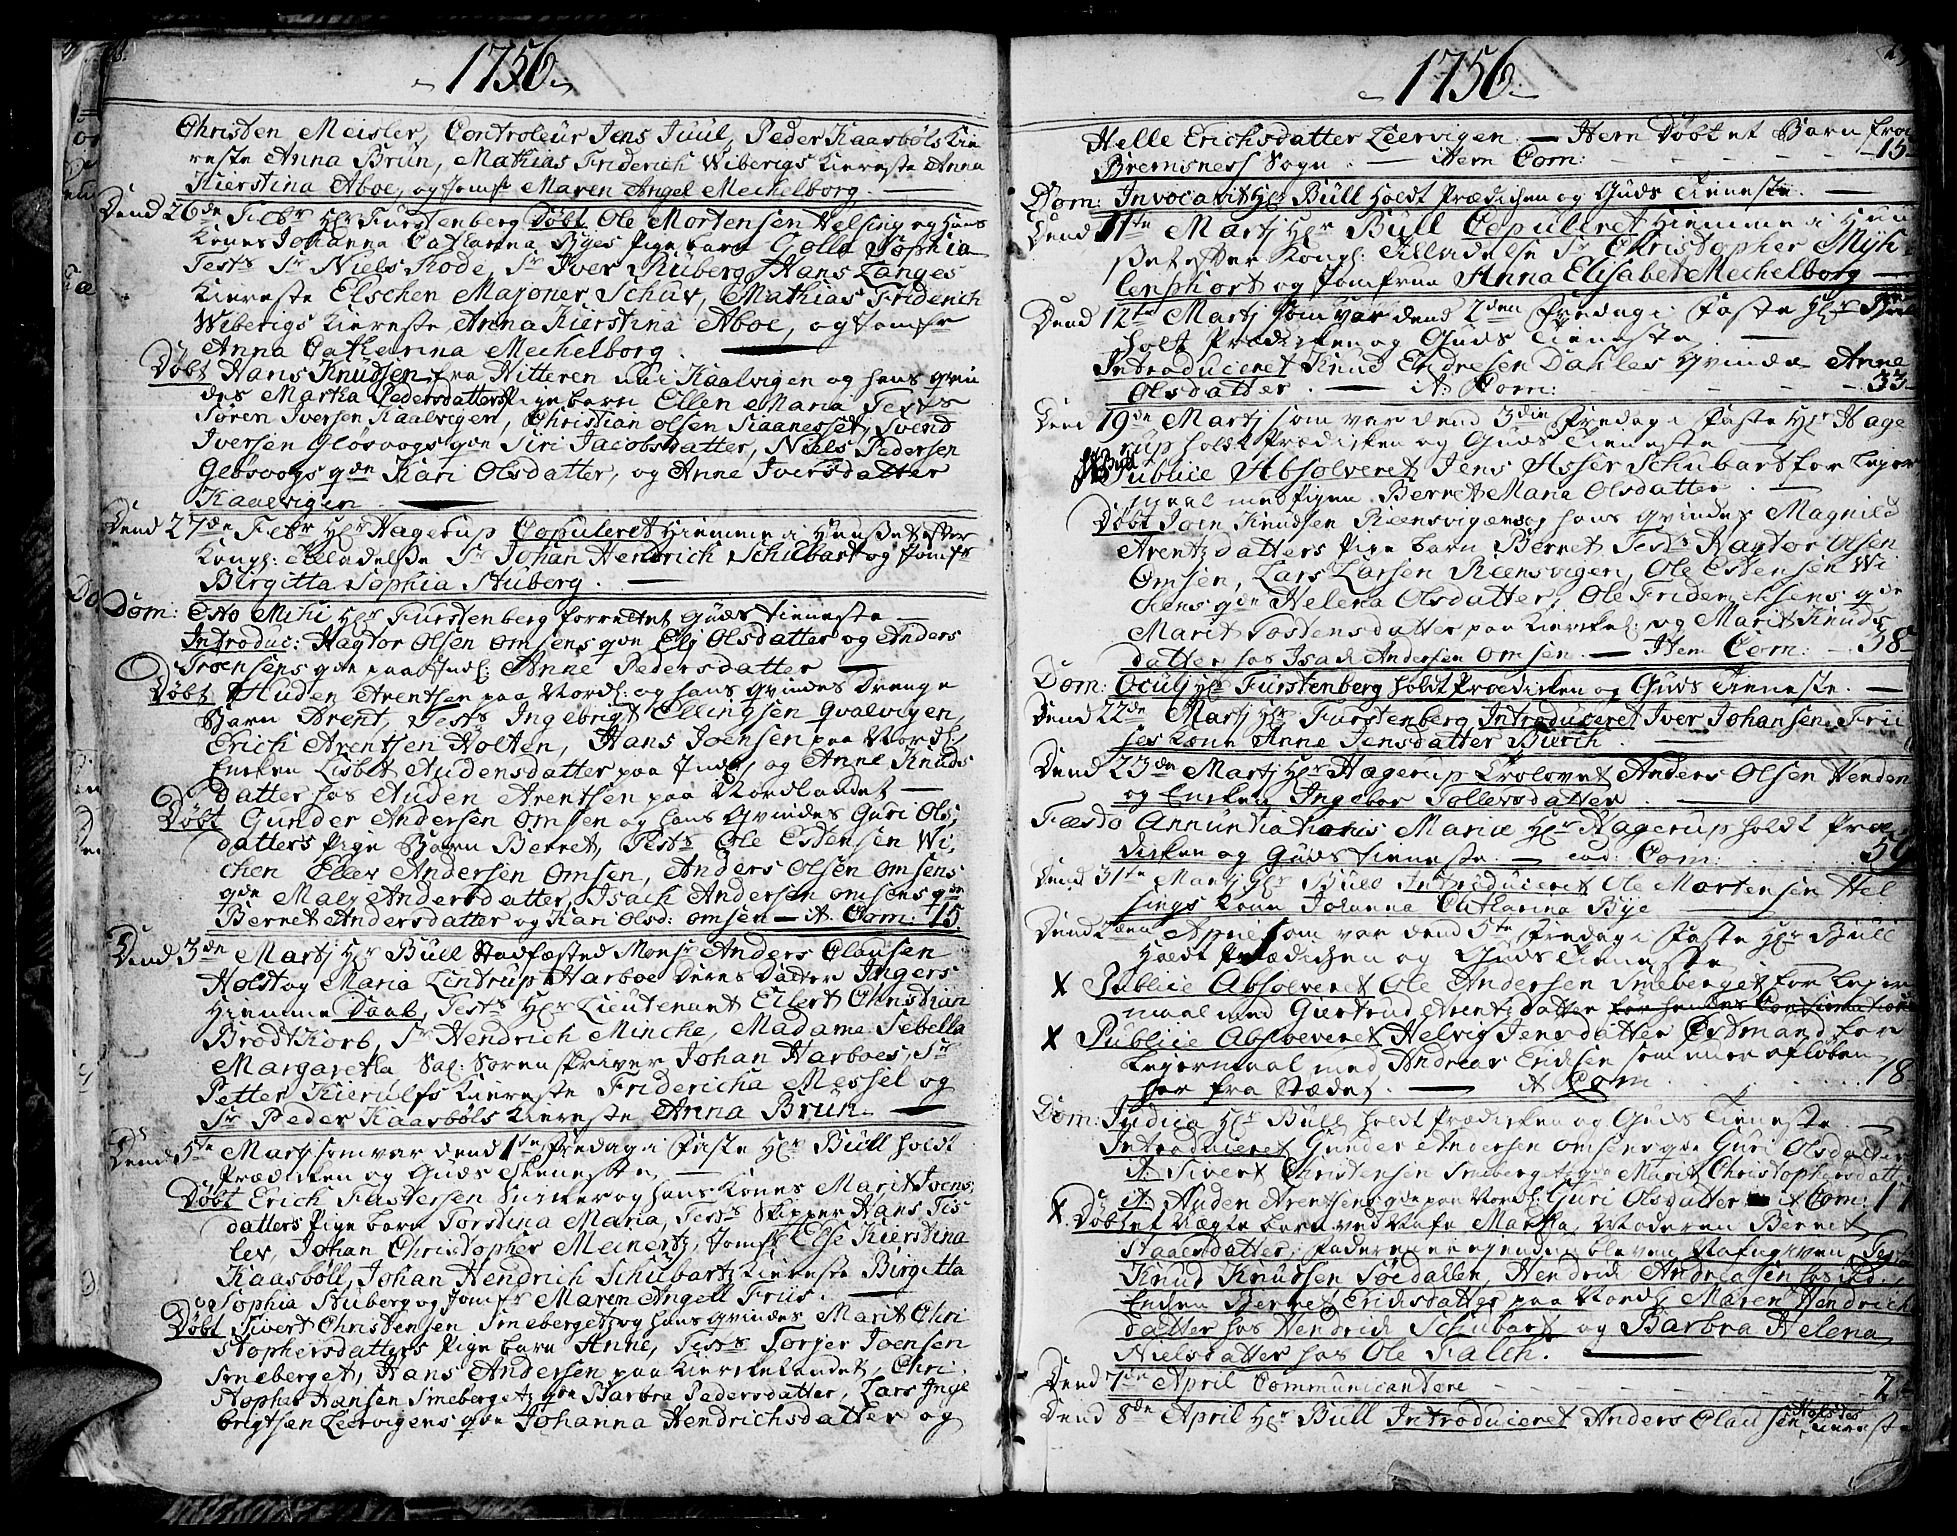 1756
Christen Meisler, Controleur Jens Juul, Peder Kaasbøls Kie
reste Anna Brün, Mathias Friderich Wiberigs Kiereste Anna
Kierstina Aboe, og Jomfr Maren Angel Mechelborg.
Dend 26de Febr Hr Fürstenberg Døbt Ole Mortensen Helsing og Hans
Kones Johanna Catharina Byes Pige barn Golla Sophia
Tests Sr Niels Kode, Sr Iver Rüberg, Hans Langes
Kiereste Elschen Majoner Schur, Mathias Friderich
Weberigs Kiereste Anna Kierstina Aboe, og Jomfr
Anna Catharina Mechelborg.
Døbt Hans Knudsen fra Hitteren nu i Kaalvigen og hans qvin
des Martha Pedersdatters Pige barn Ellen Maria Tests
Søren Iversen Kaalvigen, Christian Olsen Kaanesset, Svend
Iversen Glosvogs qde Siri Jacobsdatter, Niels Pedersen
Gløsvogs qde Kari Olsdatter, og Anne Iversdatter
Kaalvigen
Dend 27de Febr Hr Hagerup Copuleret Hiemme i Huuset efter
Kongl: Tilladelse Sr Johan Hendrich Schubart og Jomfr
Birgitta Sophia Stuberg.
Dom: Esto Mihi Hr Fürstenberg forrettet Guds tieneste
Introduc: Hagtor Olsen Omsens qde Eli Olsdatter og Anders
Troensens qde paa Indl: Anne Pedersdatter
Døbt Auden Arentsen paa Nordl: og hans qvindes Drenge
Barn Arent, Tests Ingebrigt Ellingsen Qvalvigen,
Erich Arentsen Holten, Hans Joensen paa Nordl,
Encken Lisbet Audensdatter paa Indl, og Anne Knuds
datter hos Auden Arentsen paa Nordlandet
Døbt Gunder Andersen Omsen og hans Qvindes Guri Ols
datters Pige Barn Berret, Tests Ole Estensen Wi
chen Eller Andersen Omsen, Anders Olsen Omsens
qde Maly Andersdatter, Isach Andersen Omsens qde
Berret Andersdatter og Kari Olsd: Omsen – it Com: 75.
Dend 3de Martj Hr Bull Stadfæsted Monsr Anders Clausen
Holst og Maria Lintrup Harboe Deres Datter Ingers
Hiemme Daab, Tests Hr Lieutenant Eilert Christian
Brodtkorb, Sr Hendrich Mincke, Madame Sebella
Margaretha Sal: Sorenskriver Johan Harboes, Sr
Petter Kierulfs Kiereste Fridericha Messel og
Sr Peder Kaasbøls Kiereste Anna Brün.
Dend 5te Martj som var dend 1te Fredag i Faste Hr Bull holdt
Prædicken og Guds Tieneste,
Døbt Erich Fastersen og hans Kones Marit Ivens
datters Pige barn Torstina Maria, Tests Skipper Hans Tis
lev, Johan Christopher Meinertz, Jomfr Else Kierstina
Kaasbøll, Johan Hendrich Schubartz Kiereste Birgitta
Sophia Stuberg og Jomfr Maren Angell Friis.
Døbt Sivert Christensen Smeberget og hans qvindes Marit Chri
stophersdatters Pige barn Anne, Tests Torjer Joensen
Smeberget, Hans Andersen paa Kierkelandet, Chri
stopher Hansen Smeberget, qde Barbra Pedersdatter, Lars Inge
brigtsen Leervigens qde Johanna Hendrichsdatter og
1756
Helle Erichsdatter Leervigen. – Item Døbt et Barn fra
Bremsness Sogn. – Item Com: 15
Dom: Invocavit Hr Bull Holdt Prædichen og Guds Tieneste.
Dend 11te Martj Hr Bull Copuleret Hiemme i Huu
set efter Kongl: Tilladelse Sr Christopher Myh
lenphort og Jomfrue Anna Elisabet Mechelborg
Dend 12te Martj som var dend 2den Fredag i Faste Hr
holt Prædicken og Guds Tieneste
Introduceret Knud Endresen Dahles Qvinde Anne
Olsdatter. – it Com: 33
Dend 19de Martj som var dend 3die Fredag i Faste Hr Hage
rup holdt Prædicken og Guds Tieneste
Hr Bull Publice Absolveret Jens Asser Schubart for Leyer
maal med Pigen Berret Maria Olsdatter.
Døbt Joen Knudsen Reensvigens og hans qvindes Magnild
Arentzdatters Pige barn Berret Tests Hagtor Olsen
Omsen, Lars Larsen Reensvigen, Ole Estensen Wi
chens qde Helena Olsdatter, Ole Fridenchsens qde
Marit Tostensdatter paa Kierkel: og Marit Knuds
datter hos Isach Andersen Omsen. – Item Com: 38
Dom: Oculj Hr Fürstenberg holdt Prædicken og Guds Tieneste.
Dend 22de Martj Hr Fürstenberg Introduceret Iver Johansen Frii
ses Kone Anne Jensdatter Bierch.
Dend 23de Martj Hr Hagerup Trolovet Anders Olsen Venden
og Encken Ingebor Tollevsdatter
Fæsto Annuntiationis Mariæ Hr Hagerup holdt Præ
dicken og Guds tieneste – eod: Com: 59
Dend 31te Martj Hr Bull Introduceret Ole Mortensen Hel
sings Kone Johanna Catharina Bye
Dend 2den April som var dend 5te Fredag i Faste Hr Bull
Holdt Prædichen og Guds Tieneste
x Publice Absolveret Ole Andersen Smeberget for Leyer
maal med Giertrud Arentzdatter
x Publice Absolveret Helvig Jensdatter Østmand for
Leyermaal med Andreas Erichsen som nu er afløben
her fra Stædet. – it Com 18
Dom: Judica Hr Bull holdt Prædicken og Guds Tieneste
Introduceret Gunder Andersen Omsens qde Guri Olsdatter
it: Sivert Christensen Smebergets qde Marit Christophersdatt
it: Auden Arentsens qde paa Nordl: Guri Olsdatter it Com: 17
x Døbt et Uægte barn ved Nafn Martha, Moderen Berret
Staalesdatter, Faderen er ejendnu bleven Nafngiven Test
Knud Knudsen Søedalen, Hendrich Andreasen hos ib.,
Encken Berret Erichsdatter paa Nordl, Maren Hendrichs
datter hos Hendrich Schubart og Barbra Helena
Nielsdatter hos Ole Falch.
Dend 7de April Communicantere 2
Dend 8de April Hr Bull Introduceret Anders Clausen Holstes Kiereste